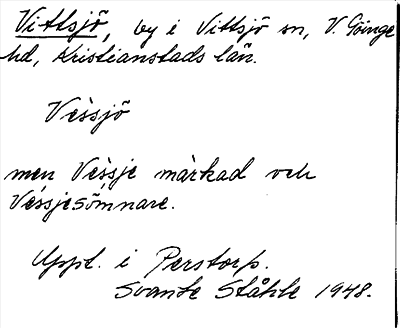 Vittsjö, by i Vittsjö sn, V. Göinge
hd, Kristianstads län.
Vèssjö
men Vèssje màrkad och
Véssjesömnare.
Uppt. i Perstorp.
Svante Ståhle 1948.